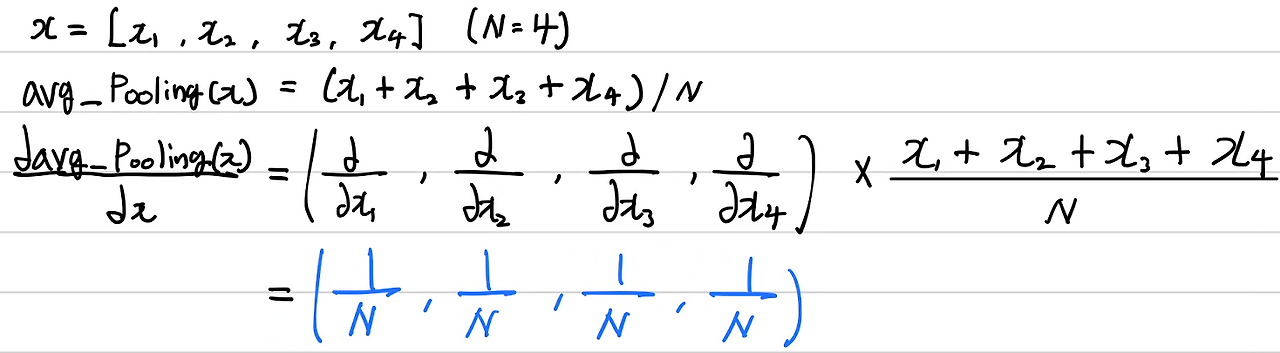 x = [x₁, x₂, x₃, x₄] (N=4)
avg_Pooling(x) = (x₁ + x₂ + x₃ + x₄) / N
∂avg_Pooling(x)/∂x = (∂/∂x₁, ∂/∂x₂, ∂/∂x₃, ∂/∂x₄) × (x₁ + x₂ + x₃ + x₄)/N
= (1/N, 1/N, 1/N, 1/N)